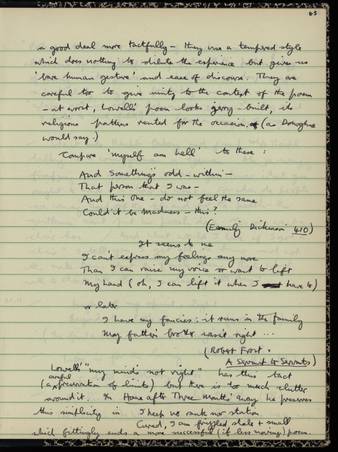 65
a good deal more tactfully – they use a tempered style
which does nothing to dilute the experience but gives us
'love human gesture' and ease of discourse. They are
careful too to give unity to the context of the poem
– at worst, Lowell's poem looks jerry-built, its
religious pattern rented for the occasion. (as Donoghue
would say.)
Compare 'myself am hell' to these:
And Something's odd – within –
That person that I was –
And this One – do not feel the same
Could it be Madness – this?
(Emily Dickinson 410)
It seems to me
I can't express my feelings any more
Than I can raise my voice or want to lift
My hand (oh, I can lift it when I have to)
or later
I have my fancies: it runs in the family
My father's brother wasn't right ...
(Robert Frost.
A Servant to Servants)
Lowell's "my mind's not right" has this tact
(appreciation of limits) but there is too much clutter
around it. In Home after Three Months' away he preserves
this simplicity in I keep no rank nor station
Cured, I am frizzled stale & small
which fittingly ends a more successful (if less moving) poem.